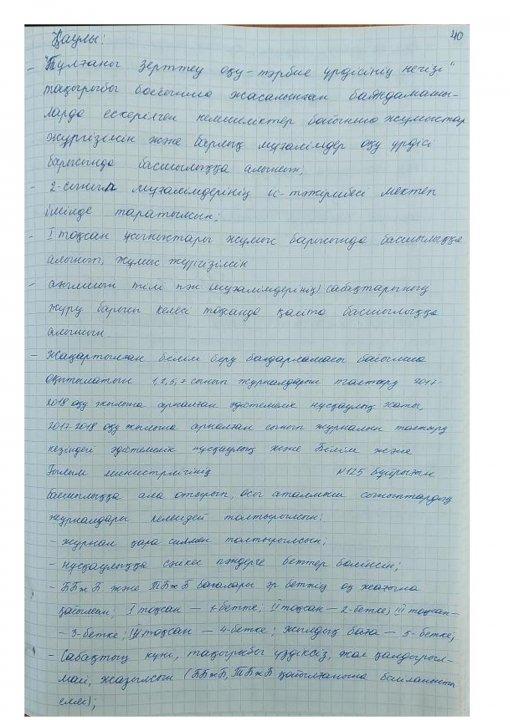 40
Қаулы:
- "Тұлғаны зерттеу оқу-тәрбие үрдісінің негізі"
тақырыбы бойынша жасалынған баяндамашы-
ларда ескерілген кемшіліктер бойынша жұмыстар
жүргізілсін және барлық мұғалімдер оқу үрдісі
барысында басшылыққа алынсын;
- 2-сынып мұғалімдерінің іс-тәжірибесі мектеп
ішінде таратылсын;
- I тоқсан ұсыныстары жұмыс барысында басшылыққа
алынып, жұмыс жүргізілсін
- ағылшын тілі пән (мұғалімдерінің) сабақтарының
жүру барысы келесі тоқсанда қайта басшылыққа
алынсын
- Жаңартылған білім беру бағдарламасы бойынша
оқытылатын 1,2,5,7 сынып журналдарын толтыру 2017-
2018 оқу жылына арналған әдістемелік нұсқаулық хаты,
2017-2018 оқу жылына арналған сынып журналын толтыру
кезіндегі әдістемелік нұсқаулық және Білім және
Ғылым министрлігінің №125 бұйрығын
басшылыққа ала отырып, осы аталмыш сыныптардың
журналдары келесідей толтырылсын:
- журнал қара сиямен толтырылсын;
- нұсқаулыққа сәйкес пәндерге беттер бөлінсін;
- ББжБ және ТБжБ бағалары әр беттің оң жағына
қойылсын; I тоқсан — 1-бетке; II тоқсан — 2-бетке; III тоқсан-
- 3-бетке; IV тоқсан — 4-бетке; жылдық баға — 5-бетке;
- Сабақтың күні, тақырыбы үздіксіз, жол қалдырыл-
май, жазылсын (ББжБ, ТБжБ қойылғанына байланысты
емес);